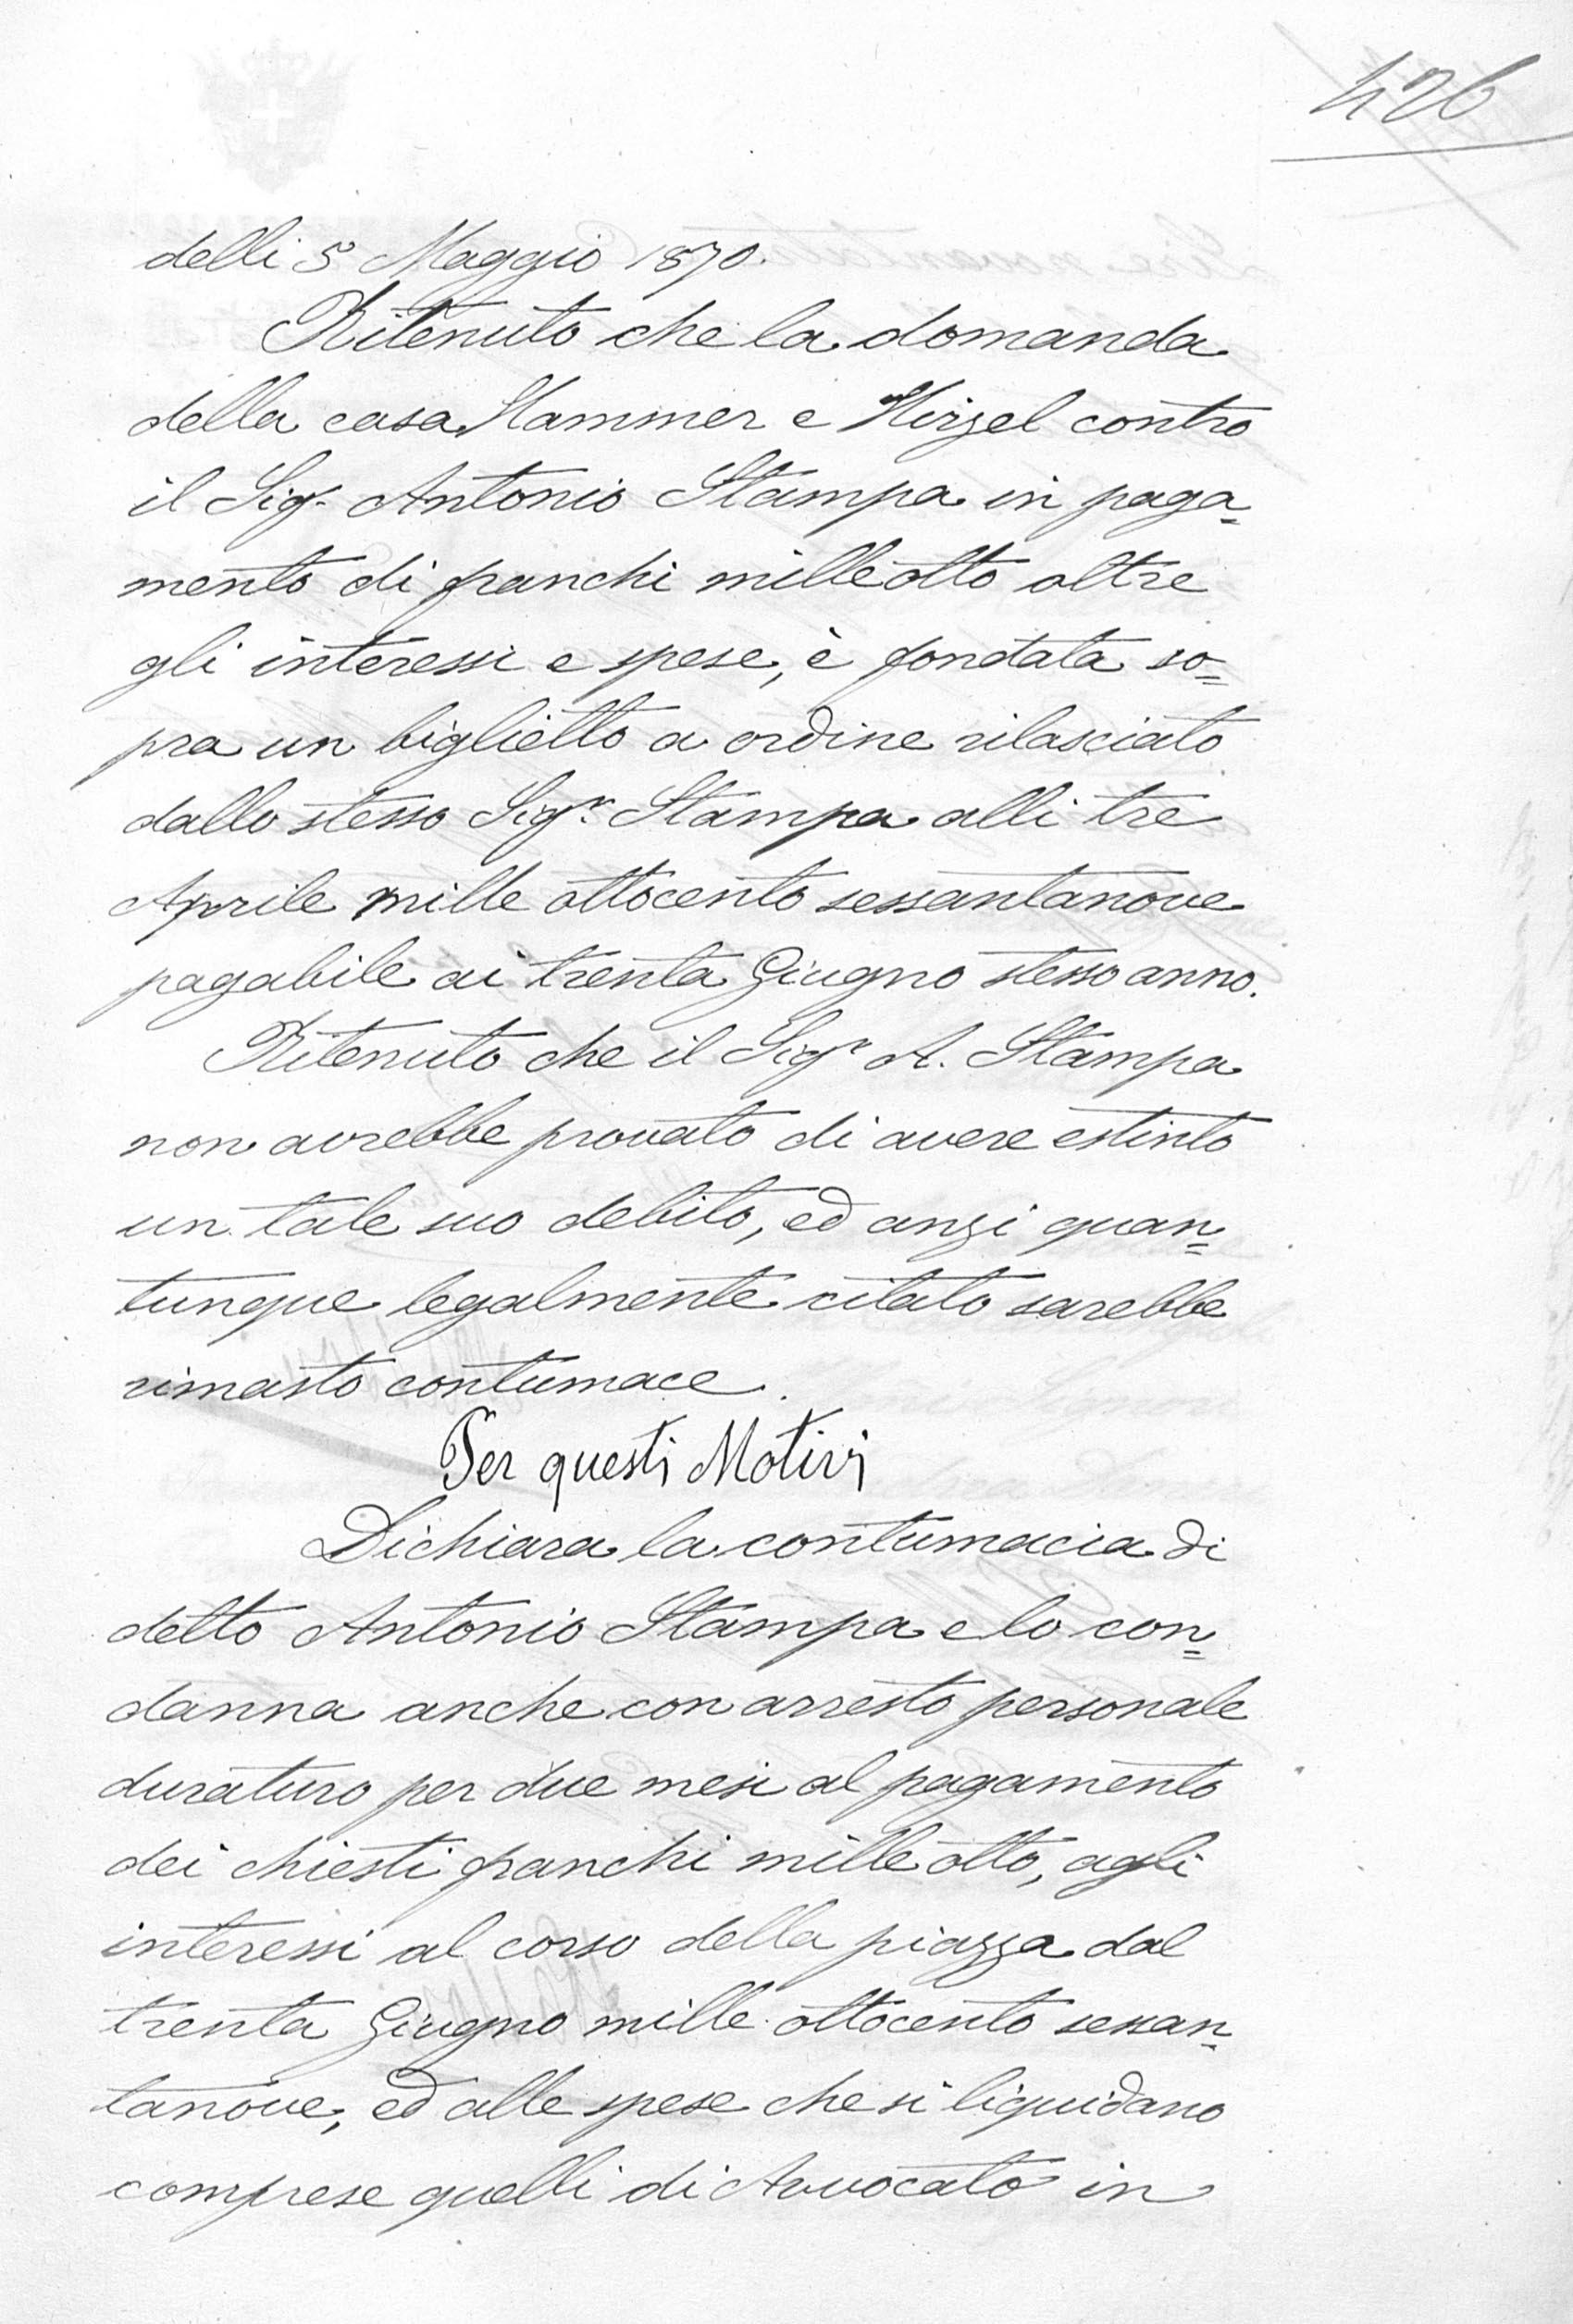 426
delli 5 Maggio 1870.
Ritenuto che la domanda
della casa Hammer e Hirzel contro
il Sigr Antonio Stampa in paga=
mento di franchi mille otto oltre
gli interessi e spese, è fondata so=
pra un biglietto a ordine rilasciato
dallo stesso Sigr. Stampa alli tre
Aprile mille ottocento sessantanove
pagabile ai trenta Giugno stesso anno.
Ritenuto che il Sigr A. Stampa
non avrebbe provato di avere estinto
un tale suo debito, ed anzi quan=
tunque legalmente citato sarebbe
rimasto contumace.
Per questi Motivi
Dichiara la contumacia di
detto Antonio Stampa e lo con=
danna anche con arresto personale
duraturo per due mesi al pagamento
dei chiesti franchi mille otto, agli
interessi al corso della piazza dal
trenta Giugno mille ottocento sessan=
tanove, ed alle spese che si liquidano
comprese quelli di Avvocato in